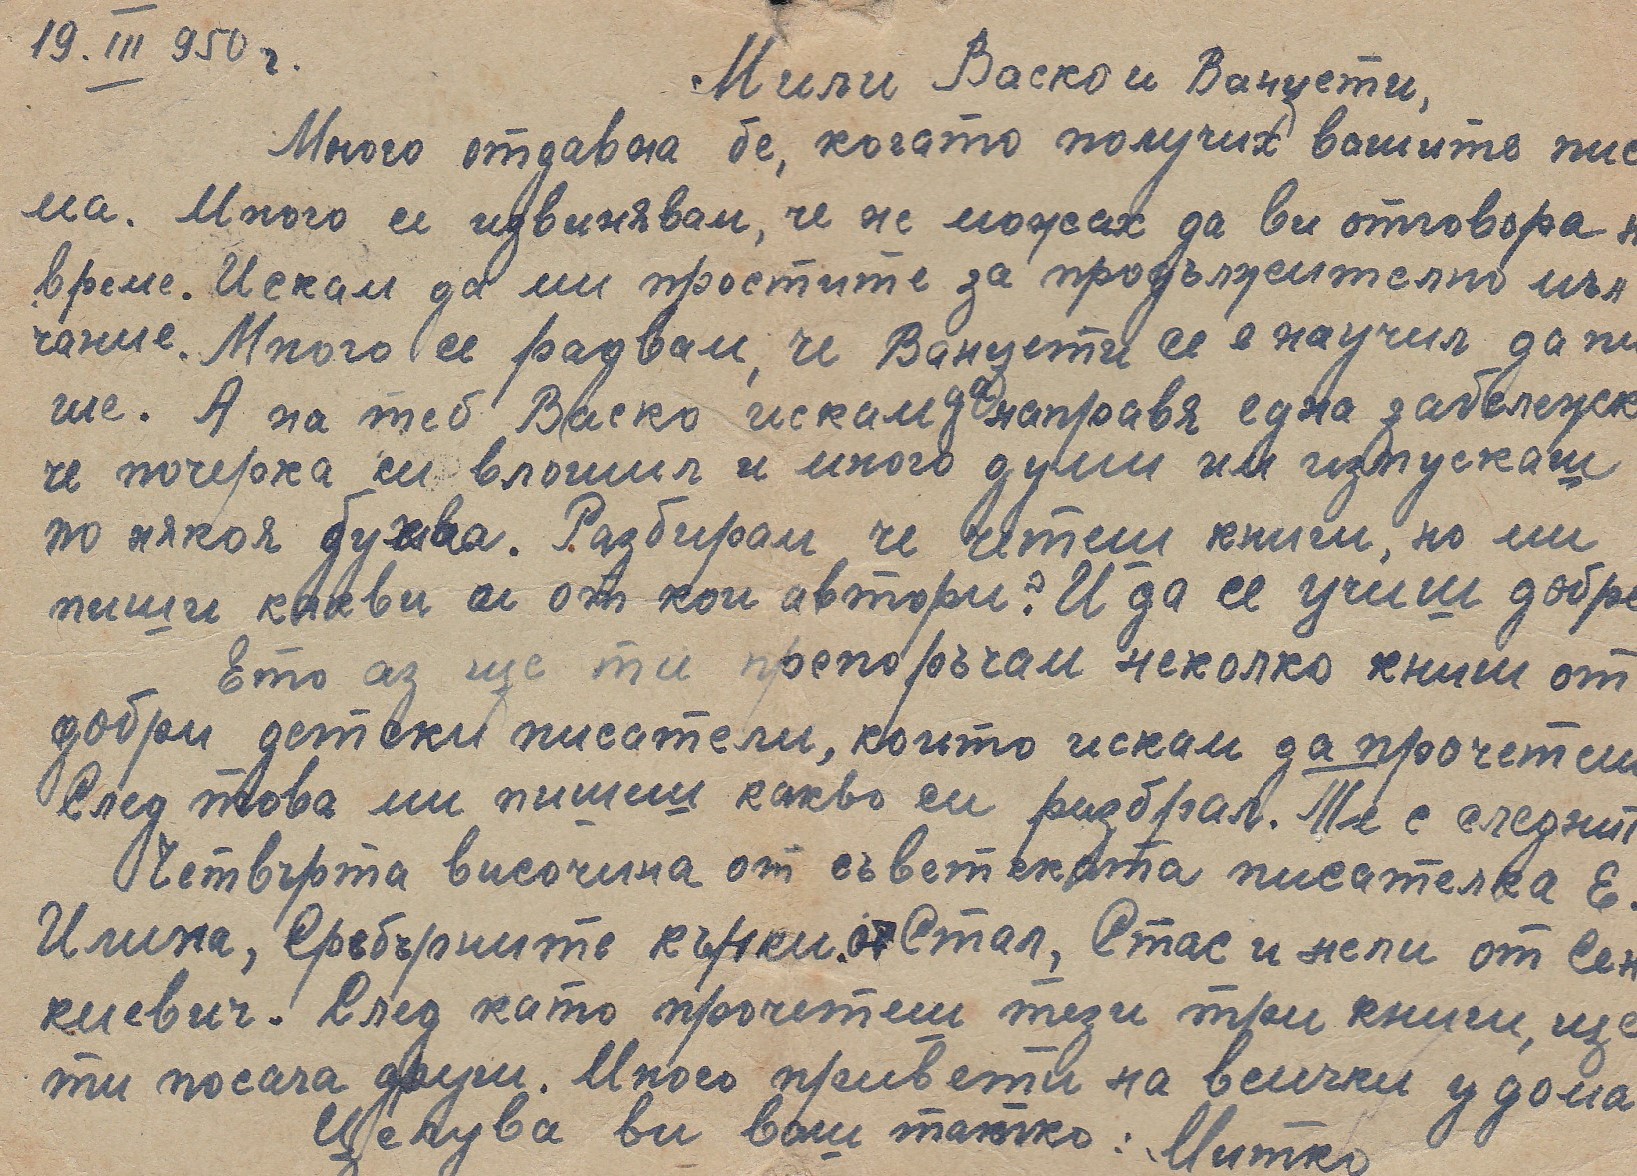 19. III 950 г.
Мили Васко и Ванцети,
Много отдавна бе, когато получих вашите пис
ма. Много се извинявам, че не можах да ви отговора н
време. Искам да ми простите за продължително мъл
чание. Много се радвам, че Ванцети се е научил да пи
ше. А на теб Васко искам да направя една забележк
че почерка си влошил и много думи им изпускаш
по някоя буква. Разбирам че четеш книги, но ми
пиши какви и от кои автори? И да се учиш добре
Ето аз ще ти препоръчам неколко книги от
добри детски писатели, които искам да прочетеш
След това ми пишеш какво си разбрал. Те с следнит
Четвърта височина от съветската писателка Е.
Илина, Сребърните кънки от Стал, Стас и нели от Сен
киевич. След като прочетеш тези три книги, ще
ти посача други. Много привети на всички у дома
Целува ви ваш татко: Митко